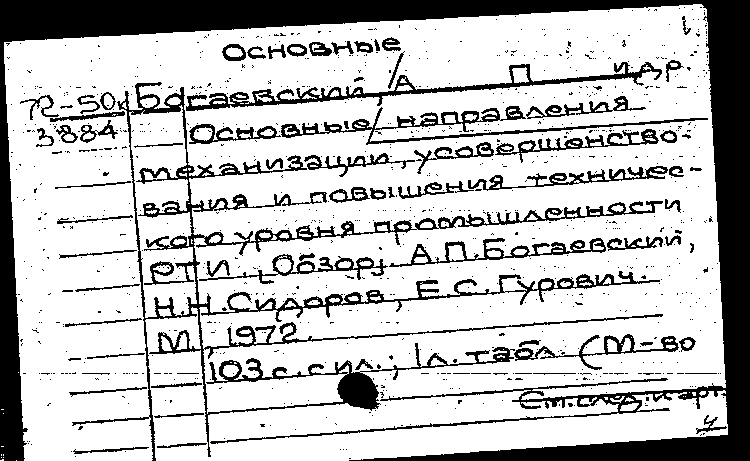 Основные
Богаевский, А П и др.
72-50к
3884
Основные/направления
механизации, усовершенство-
вания и повышения техничес-
кого уровня промышленности
РТИ. [Обзор]. А.П.Богаевский,
Н.Н.Сидоров, Е.С.Гурович.
М., 1972.
103 с. с ил.; 1 л. табл. (М-во
См.след.карт.